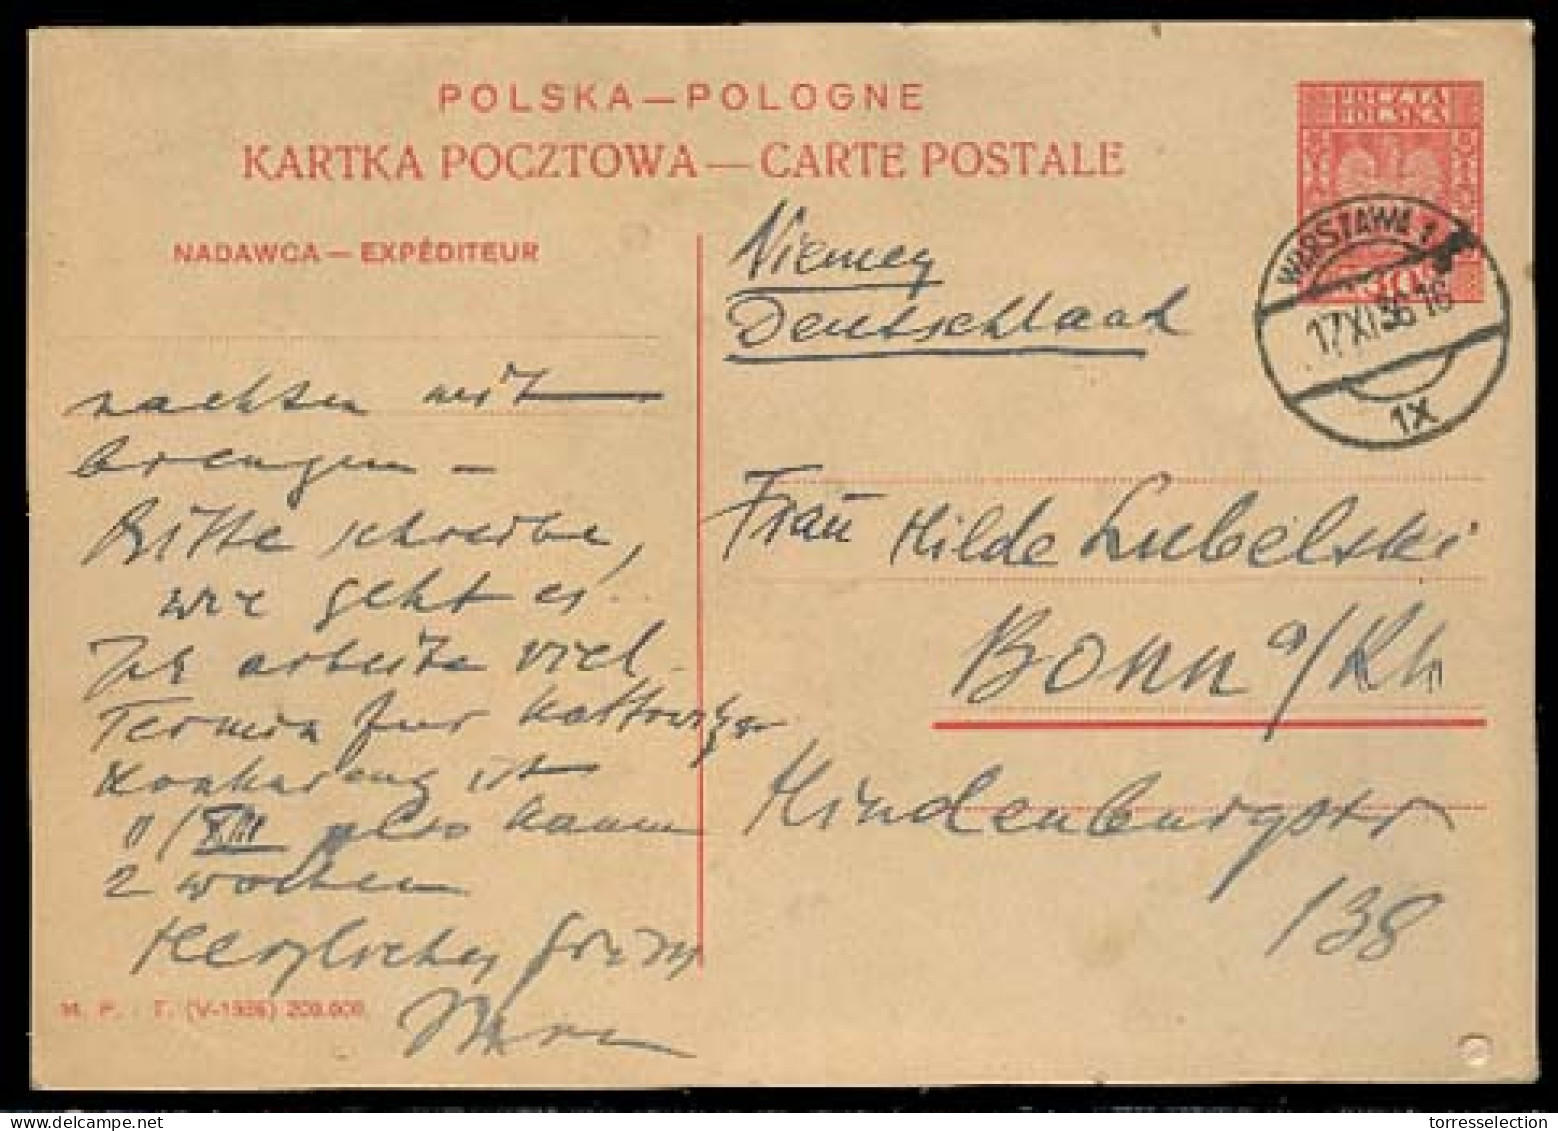 POLSKA — POLOGNE
KARTKA POCZTOWA — CARTE POSTALE
POCZTA
POLSKA
NADAWCA — EXPÉDITEUR
WARSZAWA 1
17 XI 36 16
1X
Niemcy
Deutschland
Frau Hilde Lubelski
Bonn a/Rh
Hindenburgstr
138
nachten mit
brengen —
Bitte schreibe,
wie geht es!
Ich arbeite viel.
Termin fur Kattowitzer
Konkureng ist
11/XIII also kaum
2 Wochen
Herzlichen
M. P. T. (V-1936) 200.000.
torresselection